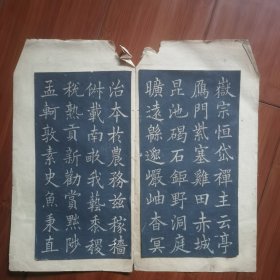 嶽宗恒岱禪主云亭
鴈門紫塞雞田赤城
昆池碣石鉅野洞庭
曠遠緜邈巖岫杳冥
治本於農務兹稼穡
俶載南畝我藝黍稷
稅熟貢新勸賞黜陟
孟軻敦素史魚秉直